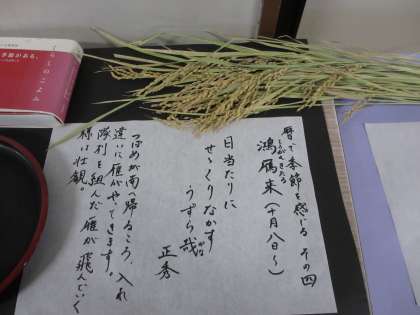 暦で季節を感じる その四
鴻雁来（十月八日〜）
こうがんきたる
日当たりに
せゝくりなかす
うずら哉
かな
正秀
つばめが南へ帰るころ、入れ
違いに雁がやてきます。
隊列を組んだ雁が飛んでいく
様は壮観。
くらしのこよみ